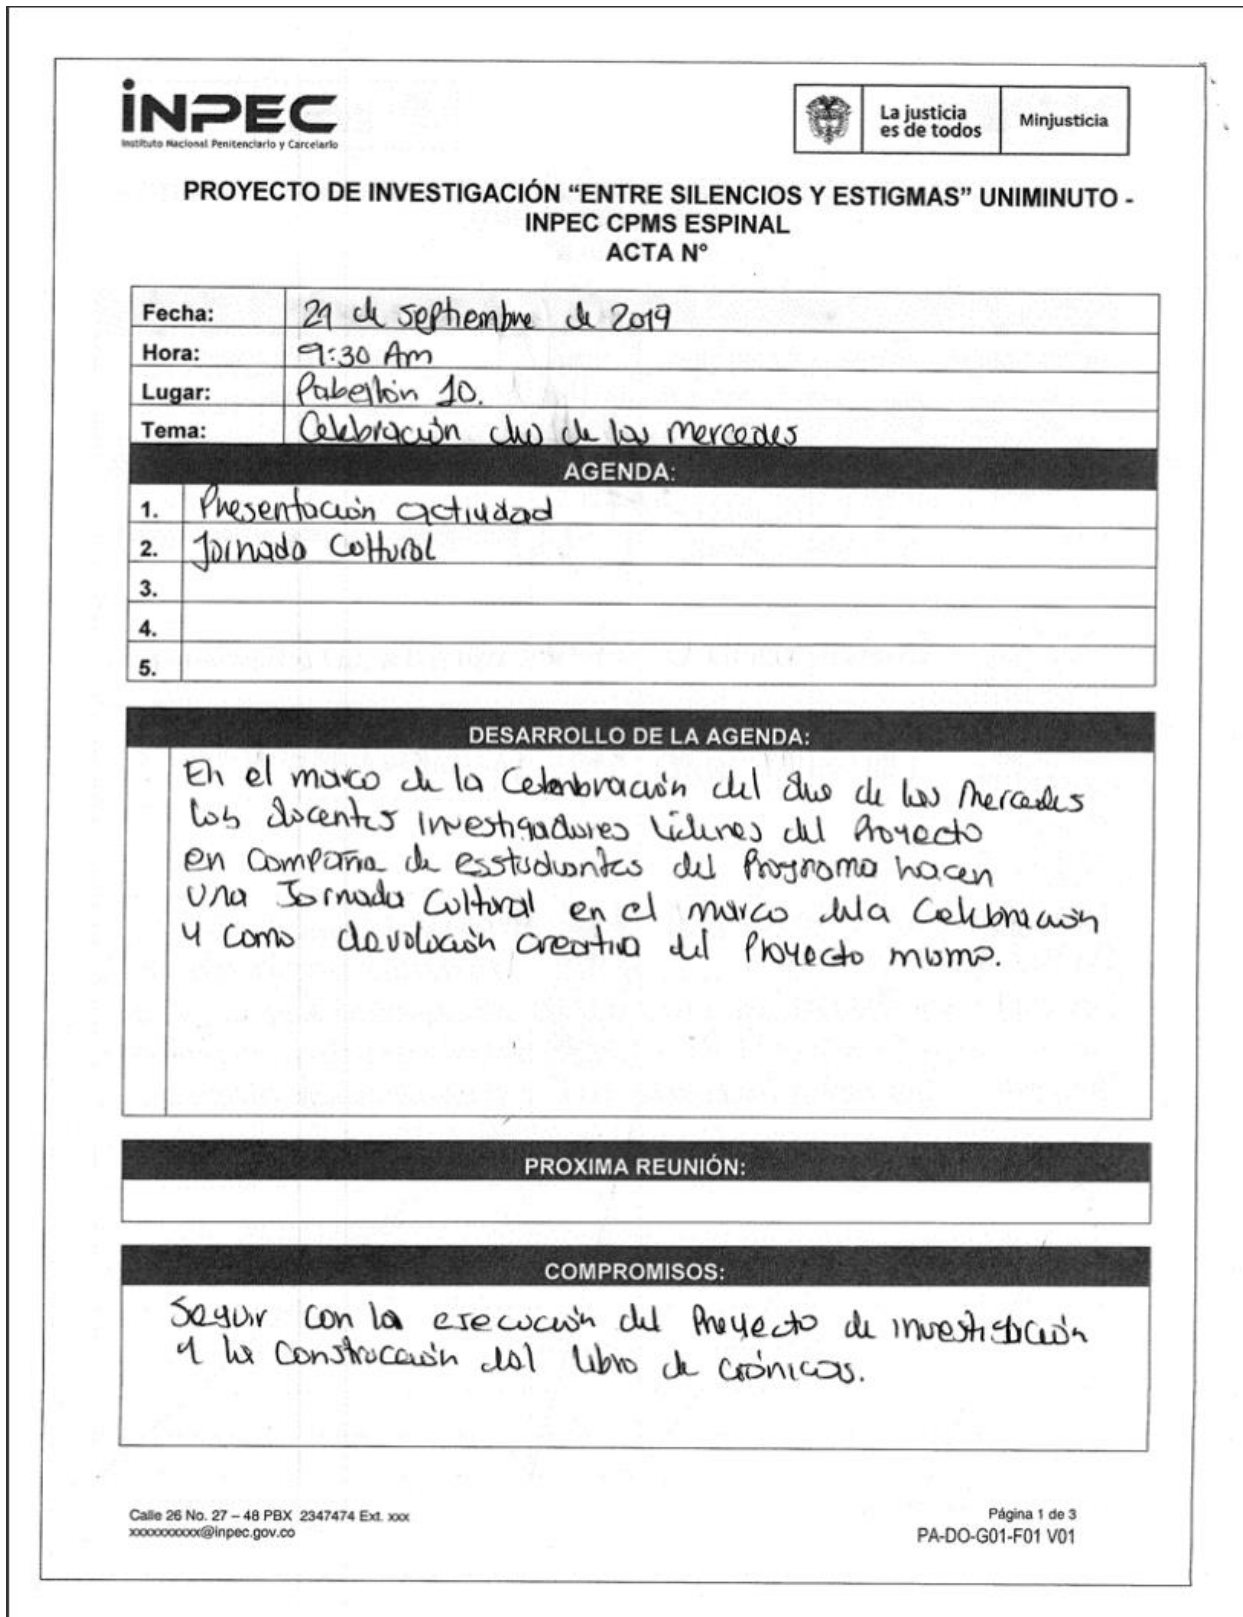 INPEC
Instituto Nacional Penitenciario y Carcelario
La justicia
es de todos
Minjusticia
PROYECTO DE INVESTIGACIÓN “ENTRE SILENCIOS Y ESTIGMAS” UNIMINUTO -
INPEC CPMS ESPINAL
ACTA N°
Fecha: de septiembre de 2019
Hora: 9:30 Am
Lugar: Pabellón 10.
Tema: Celebración de las mercedes
AGENDA:
1. Presentación actividad
2. Jornada Cultural
3.
4.
5.
DESARROLLO DE LA AGENDA:
En el marco de la Celenbración del de las Mercedes
los docentes investigadores líderes del Proyecto
en Compañia de esstudiantes del Programa hacen
una Jornada Cultural en el marco dela Celebración
y como devolución creativa del Proyecto mismo.
PROXIMA REUNIÓN:
COMPROMISOS:
Seguir con la execución del Proyecto de investigación
y la Construcción del libro de crónicas.
Calle 26 No. 27 – 48 PBX 2347474 Ext. xxx
xxxxxxxxxx@inpec.gov.co
Página 1 de 3
PA-DO-G01-F01 V01